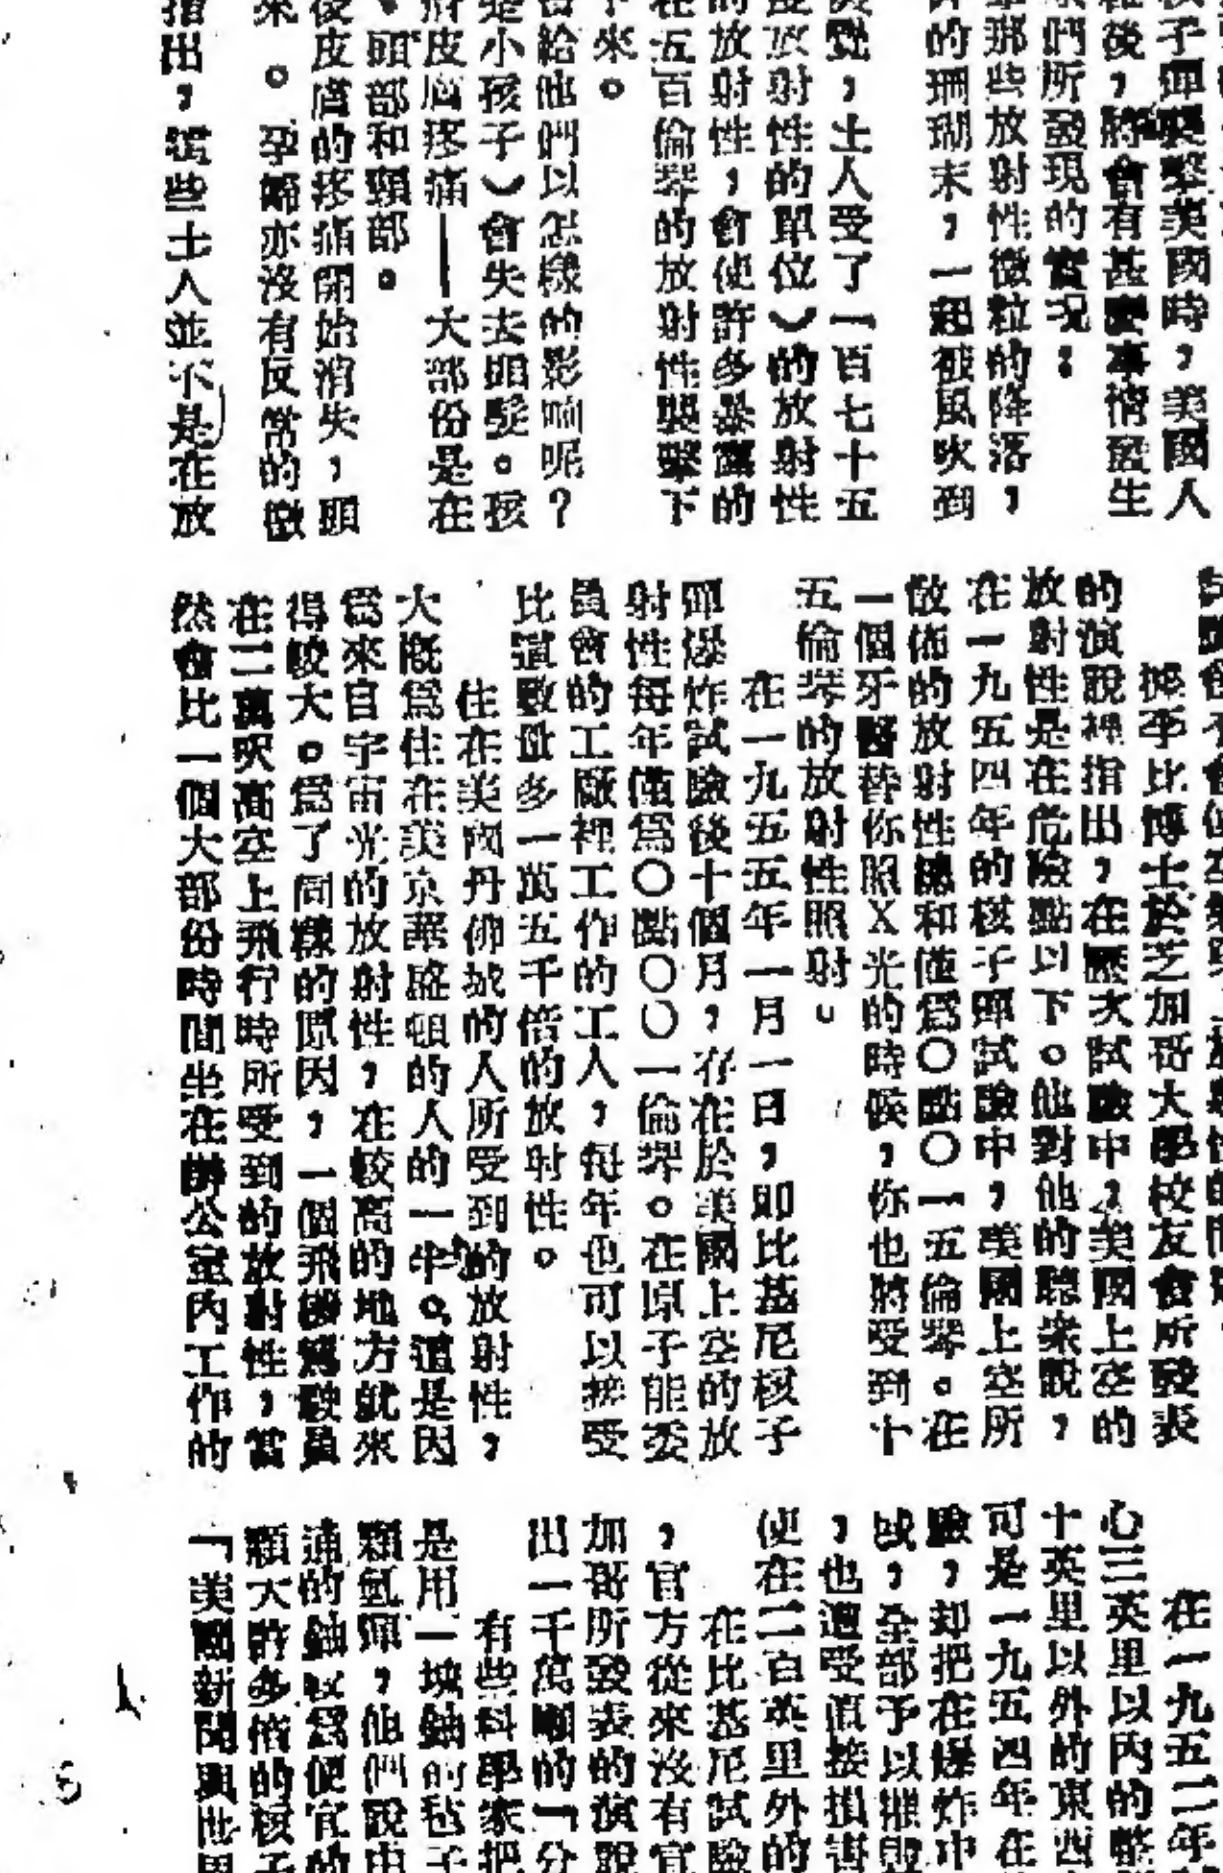 核子彈襲擊美國時，美國人
後，將會有甚麼事情發生
們所發現的實況：
那些放射性微粒的降落，
的珊瑚末，一起被風吹到
覺，土人受了一百七十五
放射性的單位）的放射性
的放射性，會使許多暴露的
在五百倫琴的放射性襲擊下
來。
給他們以怎樣的影响呢？
是小孩子）會失去頭髮。孩
皮膚疼痛——大部份是在
、頭部和頸部。
後皮膚的疼痛開始消失，頭
來。孕婦亦沒有反常的徵
指出，這些土人並不是在放
據李比博士於芝加哥大學校友會所發表
的演說裡指出，在歷次試驗中，美國上空的
放射性是在危險點以下。他對他的聽衆說，
在一九五四年的核子彈試驗中，美國上空所
散佈的放射性總和僅爲〇點〇一五倫琴。在
一個牙醫替你照X光的時候，你也將受到十
五倫琴的放射性照射。
在一九五五年一月一日，即比基尼核子
彈爆炸試驗後十個月，存在於美國上空的放
射性每年僅爲〇點〇〇一倫琴。在原子能委
員會的工廠裡工作的工人，每年也可以接受
比這數量多一萬五千倍的放射性。
住在美國丹佛城的人所受到的放射性，
大概爲住在美京華盛頓的人的一半。這是因
爲來自宇宙光的放射性，在較高的地方就來
得較大。爲了同樣的原因，一個飛機駕駛員
在二萬呎高空上飛行時所受到的放射性，當
然會比一個大部份時間坐在辦公室內工作的
在一九五二年
心三英里以內的整
十英里以外的東西
可是一九五四年在
驗，却把在爆炸中
域，全部予以摧毀
，也遭受直接損害
使在二百英里外的
在比基尼試驗
，官方從來沒有官
加哥所發表的演說
出一千萬噸的「分
有些科學家把
是用一塊鈾的毡子
顆氫彈，他們說由
通的鈾較爲便宜的
顆大許多倍的核子
「美國新聞與世界